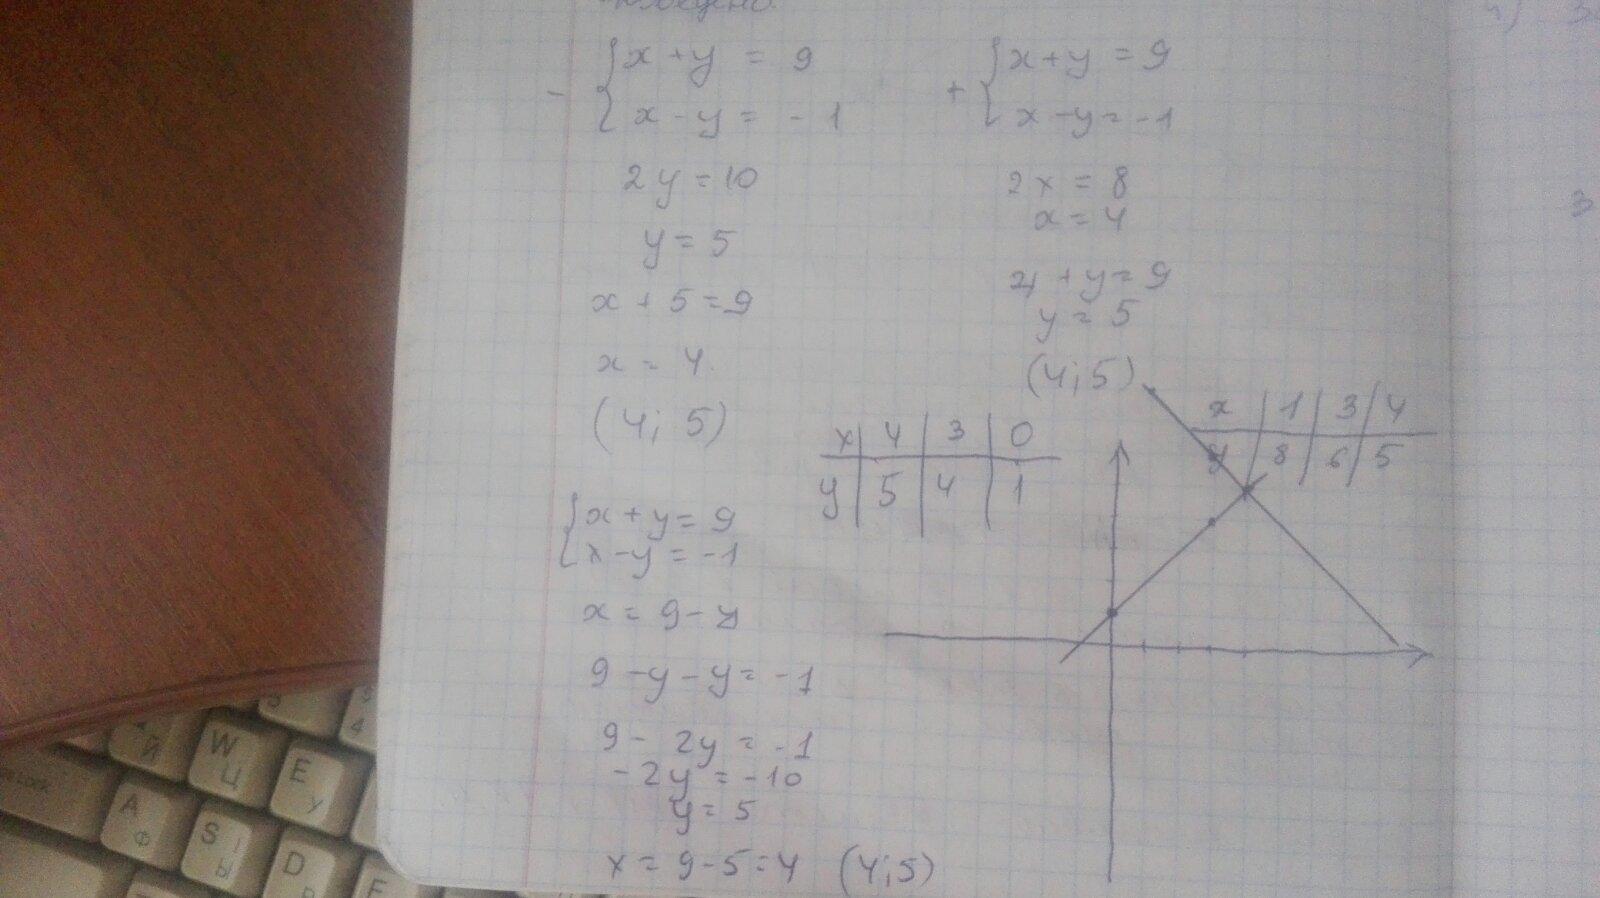 - { x + y = 9
x - y = - 1
2y = 10
y = 5
x + 5 = 9
x = 4
(4; 5)
+ { x + y = 9
x - y = -1
2x = 8
x = 4
4 + y = 9
y = 5
(4; 5)
x | 4 | 3 | 0
y | 5 | 4 | 1
x | 1 | 3 | 4
y | 8 | 6 | 5
{ x + y = 9
x - y = -1
x = 9 - y
9 - y - y = -1
9 - 2y = -1
-2y = -10
y = 5
x = 9 - 5 = 4 (4; 5)
3
W Ц
E У
Й
A Ф
S Ы
D
F
4